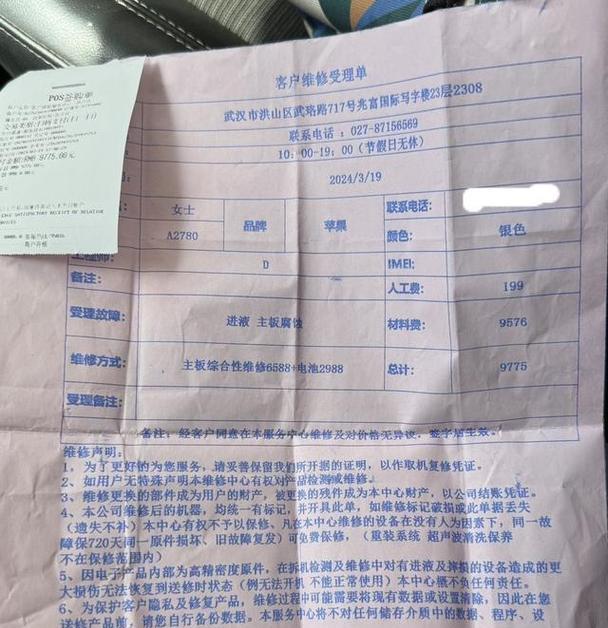 客户维修受理单
武汉市洪山区武珞路717号兆富国际写字楼23层2308
联系电话：027-87156569
10：00-19：00（节假日无休）
2024/3/19
POS签购单
9775.00
女士
品牌
苹果
联系电话：
A2780
颜色：
银色
工程师：
D
IMEI：
备注：
人工费：
199
受理故障：
进液 主板腐蚀
材料费：
9576
维修方式：
主板综合性维修6588+电池2988
总计：
9775
受理备注：
备注：经客户同意在本服务中心维修及对价格无异议，签字后生效。
维修声明：
1、为了更好的为您服务，请妥善保留我们所开据的证明，以作取机复修凭证。
2、如用户无特殊声明本维修中心有权对产品检测或维修。
3、维修更换的部件成为用户的财产，被更换的残件成为本中心财产，以公司结账凭证。
4、本公司维修后的机器，均统一有标记，并开具此单，如维修标记破损或此单据丢失
（遗失不补）本中心有权不予以保修、凡在本中心维修的设备在没有人为因素下，同一故
障保720天同一原件损坏、旧故障复发）可免费保修，（重装系统 超声波清洗保养
不在保修范围内）
5、因电子产品内部为高精密原件，在拆机检测及维修中对有进液及摔损的设备造成的更
大损伤无法恢复到送修时状态（例无法开机 不能正常使用）本中心概不负任何责任。
6、为保护客户隐私及修复产品，维修过程中可能需要将现有数据或设置清除，因此在您
送修产品前，请您自行备份数据。本服务中心将不对任何储存介质中的数据、程序、设